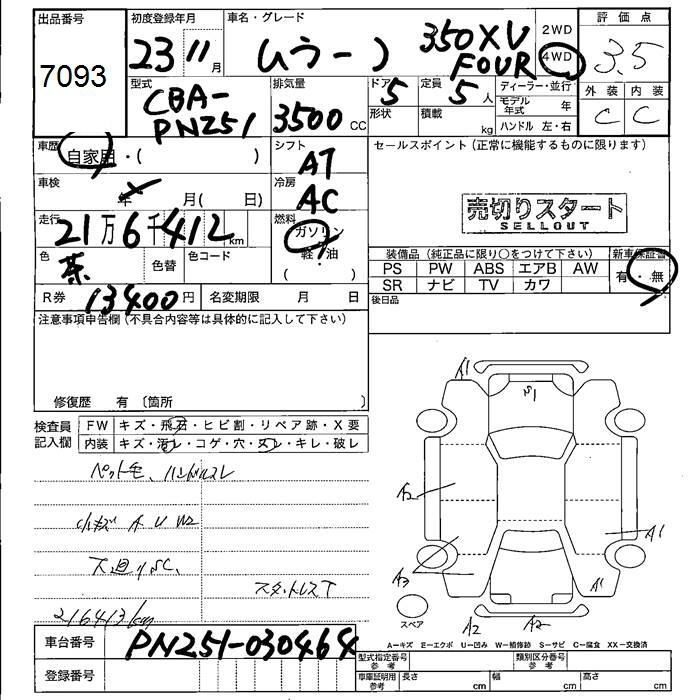 出品番号 初度登録年月 車名・グレード 2WD 評価点
7093 23 11月 ムラーノ 350XV FOUR 4WD 3.5
型式 排気量 ドア 定員 ディーラー・並行 外装 内装
CBA-PN251 3500CC 5 5人 モデル年式 年 C C
形状 積載 kg ハンドル 左・右
車歴 自家用・( ) シフト AT セールスポイント (正常に機能するものに限ります)
車検 年 月( 日) 冷房 AC
売切りスタート
SELLOUT
走行 21万6千412km 燃料 ガソリン・軽油
装備品(純正品に限り○をつけて下さい) 新車保証書
色 茶 色替 色コード PS PW ABS エアB AW 有・無
R券 13400円 名変期限 月 日 SR ナビ TV カワ
後日品
注意事項申告欄(不具合内容等は具体的に記入して下さい)
修復歴 有〔箇所 〕
検査員記入欄 FW キズ・飛石・ヒビ割・リペア跡・X要
内装 キズ・汚レ・コゲ・穴・スレ・キレ・破レ
ペット毛、ハンドルスレ
小キズ A U W2
下廻りSC、
スタットレスT
216413km
A1 S1
A2 A1
A3 A1
スペア A2 A2
A−キズ E−エクボ U−凹み W−補修跡 S−サビ C−腐食 XX−交換済
車台番号 PN251-030464
型式指定番号 参考 類別区分番号 参考
登録番号 車庫証明用 参考 長さ cm 幅 cm 高さ cm